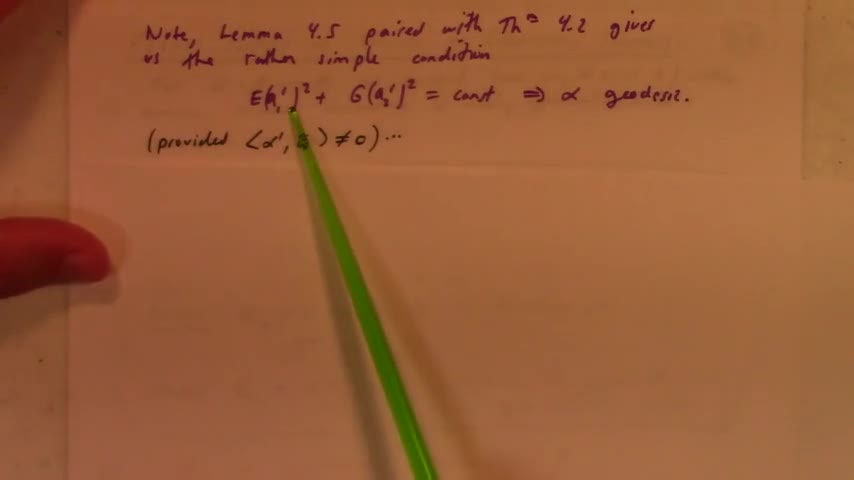 Note, Lemma 4.5 paired with Thᵐ 4.2 gives
us the rather simple condition
E(a₁')² + G(a₂')² = const ⇒ α geodesic.
(provided <α', > ≠ 0)...